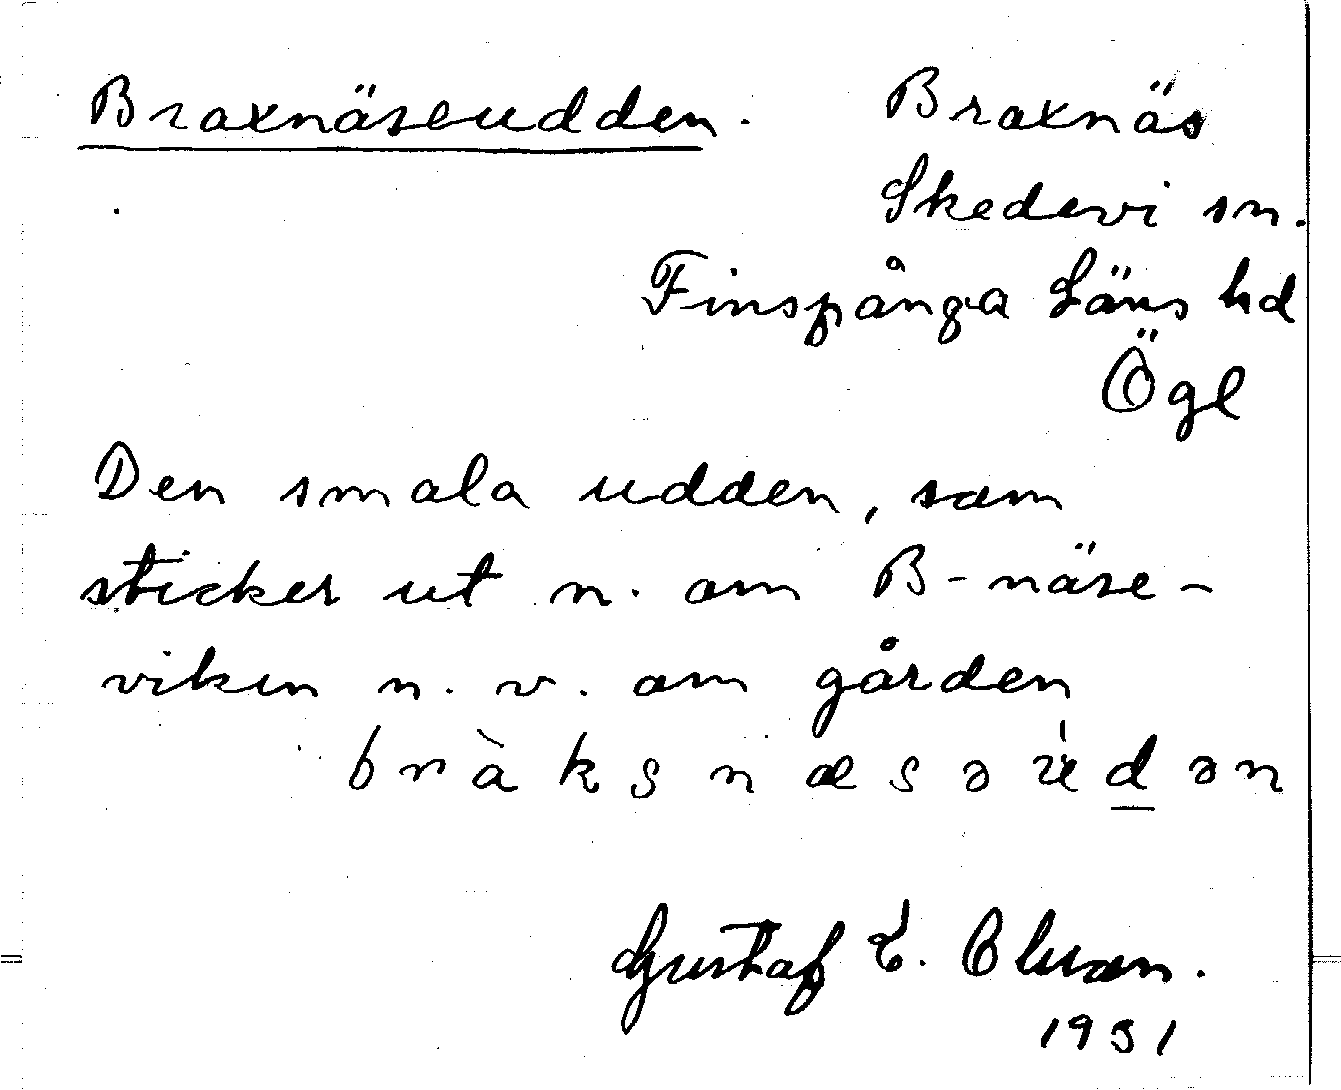 Braxnäseudden. Braxnäs
Skedevi sn.
Finspånga Läns hd
Ögl
Den smala udden, som
sticker ut n. om B-näse-
viken n. v. om gården
bràksnæsəʉ́dən
Gustaf E.
1931